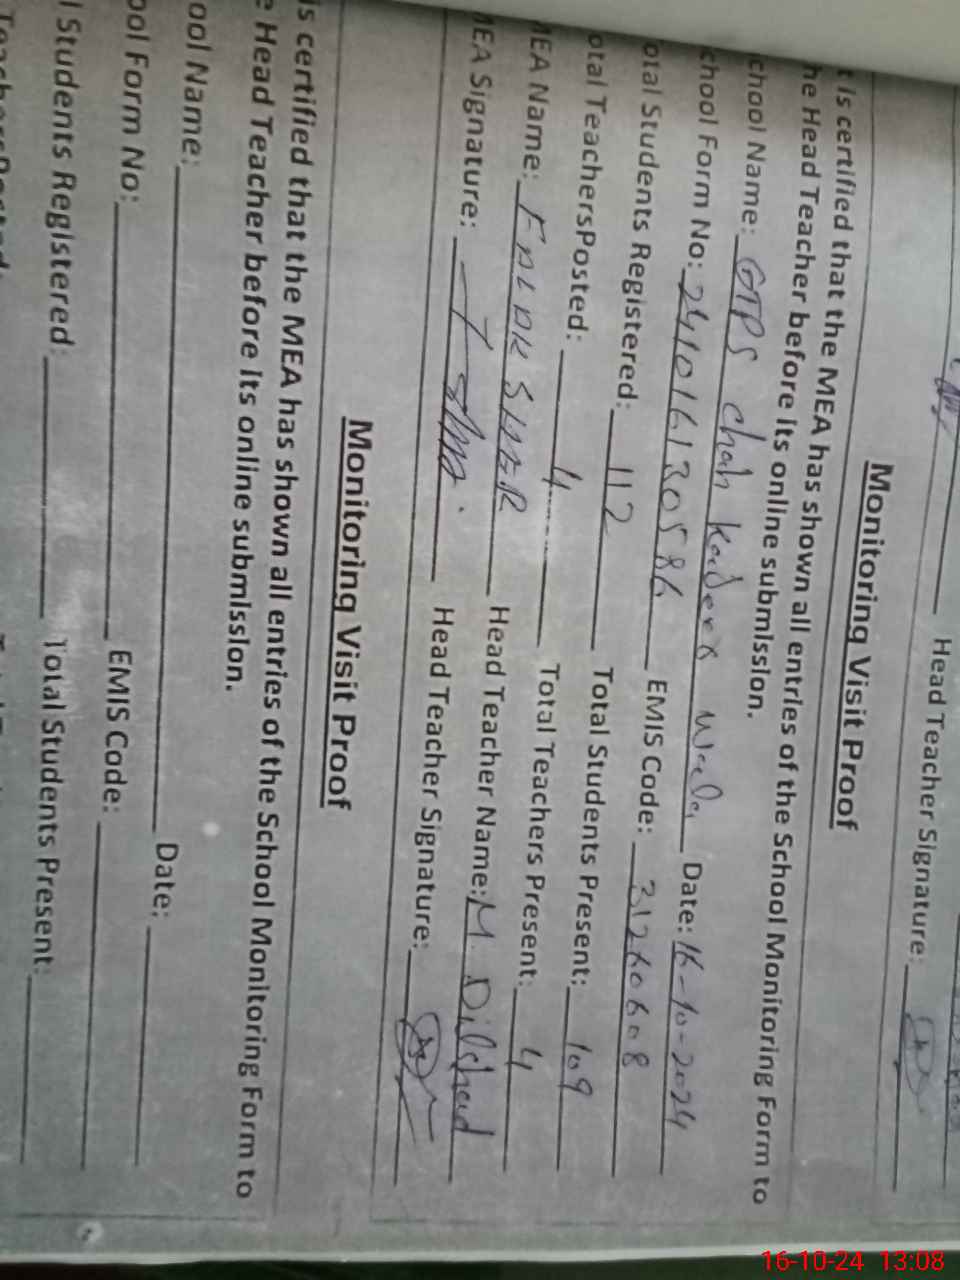 Head Teacher Signature:
Monitoring Visit Proof
t is certified that the MEA has shown all entries of the School Monitoring Form to
he Head Teacher before its online submission.
chool Name: GPS chah Wala Date: 16-10-2024
chool Form No: 241016130586 EMIS Code: 31260608
otal Students Registered: 112 Total Students Present: 109
otal TeachersPosted: 4 Total Teachers Present: 4
MEA Name: FALAK SHER Head Teacher Name: M. Dilshad
MEA Signature: Head Teacher Signature:
Monitoring Visit Proof
is certified that the MEA has shown all entries of the School Monitoring Form to
e Head Teacher before its online submission.
ool Name: Date:
ool Form No: EMIS Code:
l Students Registered: Total Students Present:
16-10-24 13:08